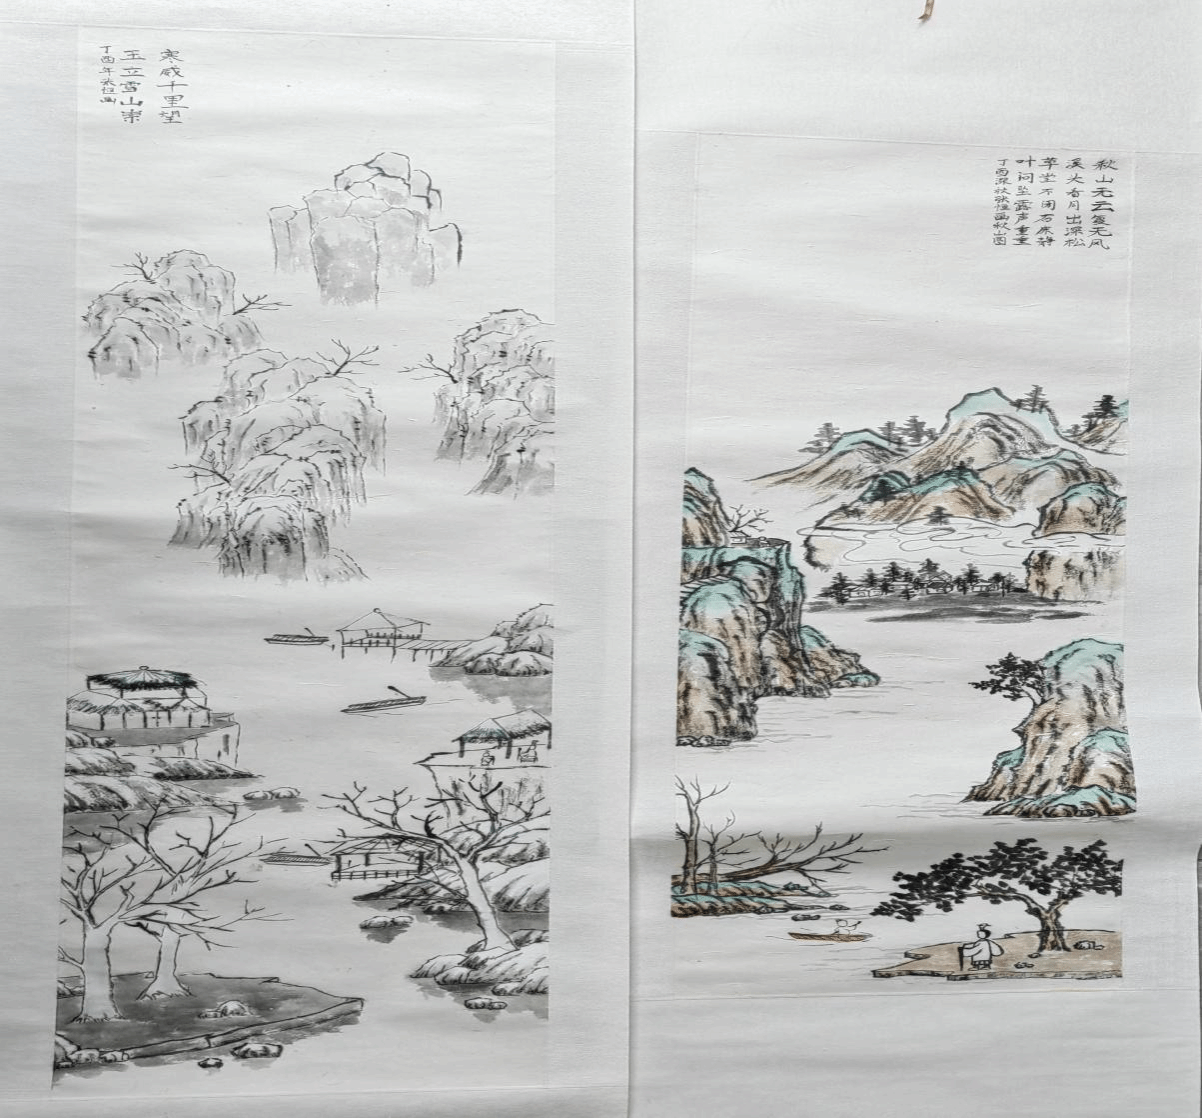 寒威千里望
玉立雪山崇
丁酉年张恒画
秋山无云复无风
溪头看月出深松
草堂不闭石床静
叶间坠露声重重
丁酉深秋张恒画秋山图